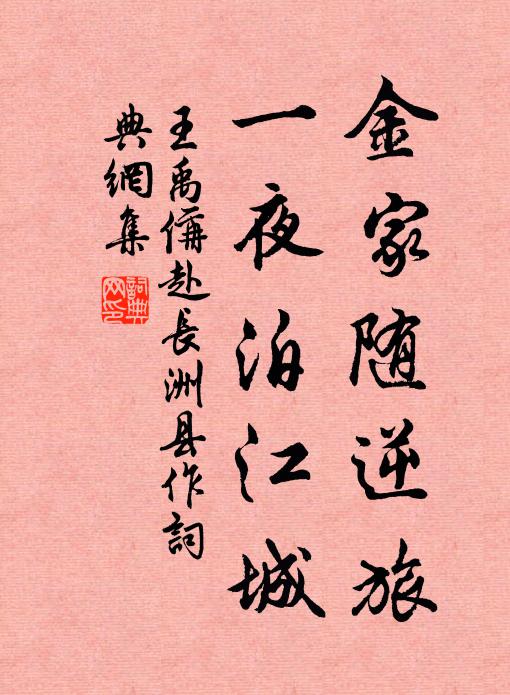 金家随逆旅
一夜泊江城
王禹偁赴長洲县作詞
典網集
詞典
网印